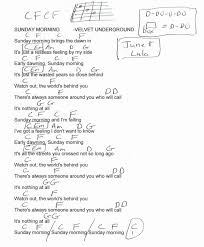 C F C F
D-DU-U-DU
= D-DU
June &
Lola
SUNDAY MORNING -VELVET UNDERGROUND
C F C F
Sunday morning brings the dawn in
C Em Am D G
It's just a restless feeling by my side
C F C F
Early dawning, Sunday morning
C Em Am D G
It's just the wasted years so close behind
C F
Watch out, the world's behind you
C F D
There's always someone around you who will call
F G
It's nothing at all
C F C F
Sunday morning and I'm falling
C Em Am D G
I've got a feeling I don't want to know
C F C F
Early dawning, Sunday morning
C Em Am D G
It's all the streets you crossed not so long ago
C F
Watch out, the world's behind you
C F D
There's always someone around you who will call
G G
It's nothing at all
C F
Watch out, the world's behind you
C F D
There's always someone around you who will call
G G
It's nothing at all
C F C F C F C
Sunday morning, Sunday morning, Sunday morning